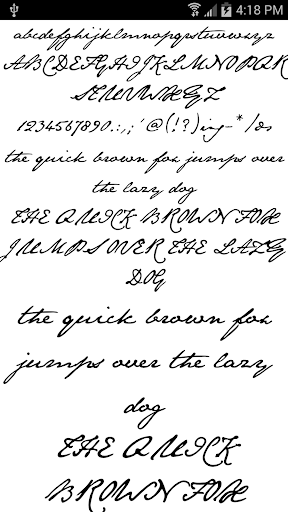 4:18 PM
abcdefghijklmnopqrstuvwxyz
ABCDEFGHIJKLMNOPQR
STUVWXYZ
1234567890.:,;'@(!?)
the quick brown fox jumps over
the lazy dog
THE QUICK BROWN FOX
JUMPS OVER THE LAZY
DOG
the quick brown fox
jumps over the lazy
dog
THE QUICK
BROWN FOX